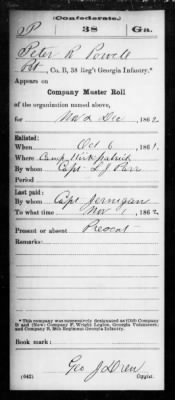 (Confederate.)
P 38 Ga.
Peter R Powell
Pvt, Co. B, 38 Reg't Georgia Infantry.*
Appears on
Company Muster Roll
of the organization named above,
for Nov & Dec, 1862.
Enlisted:
When Oct 6, 1861.
Where Camp Kirkpatrick
By whom Capt L J Parr
Period
Last paid:
By whom Capt Jernigan
To what time Nov 1, 1862.
Present or absent Present
Remarks:
*This company was successively designated as (Old) Company
B and (New) Company F, Wright Legion, Georgia Volunteers,
and Company B, 38th Regiment Georgia Infantry.
Book mark:
Geo J Drew
(642) Copyist.